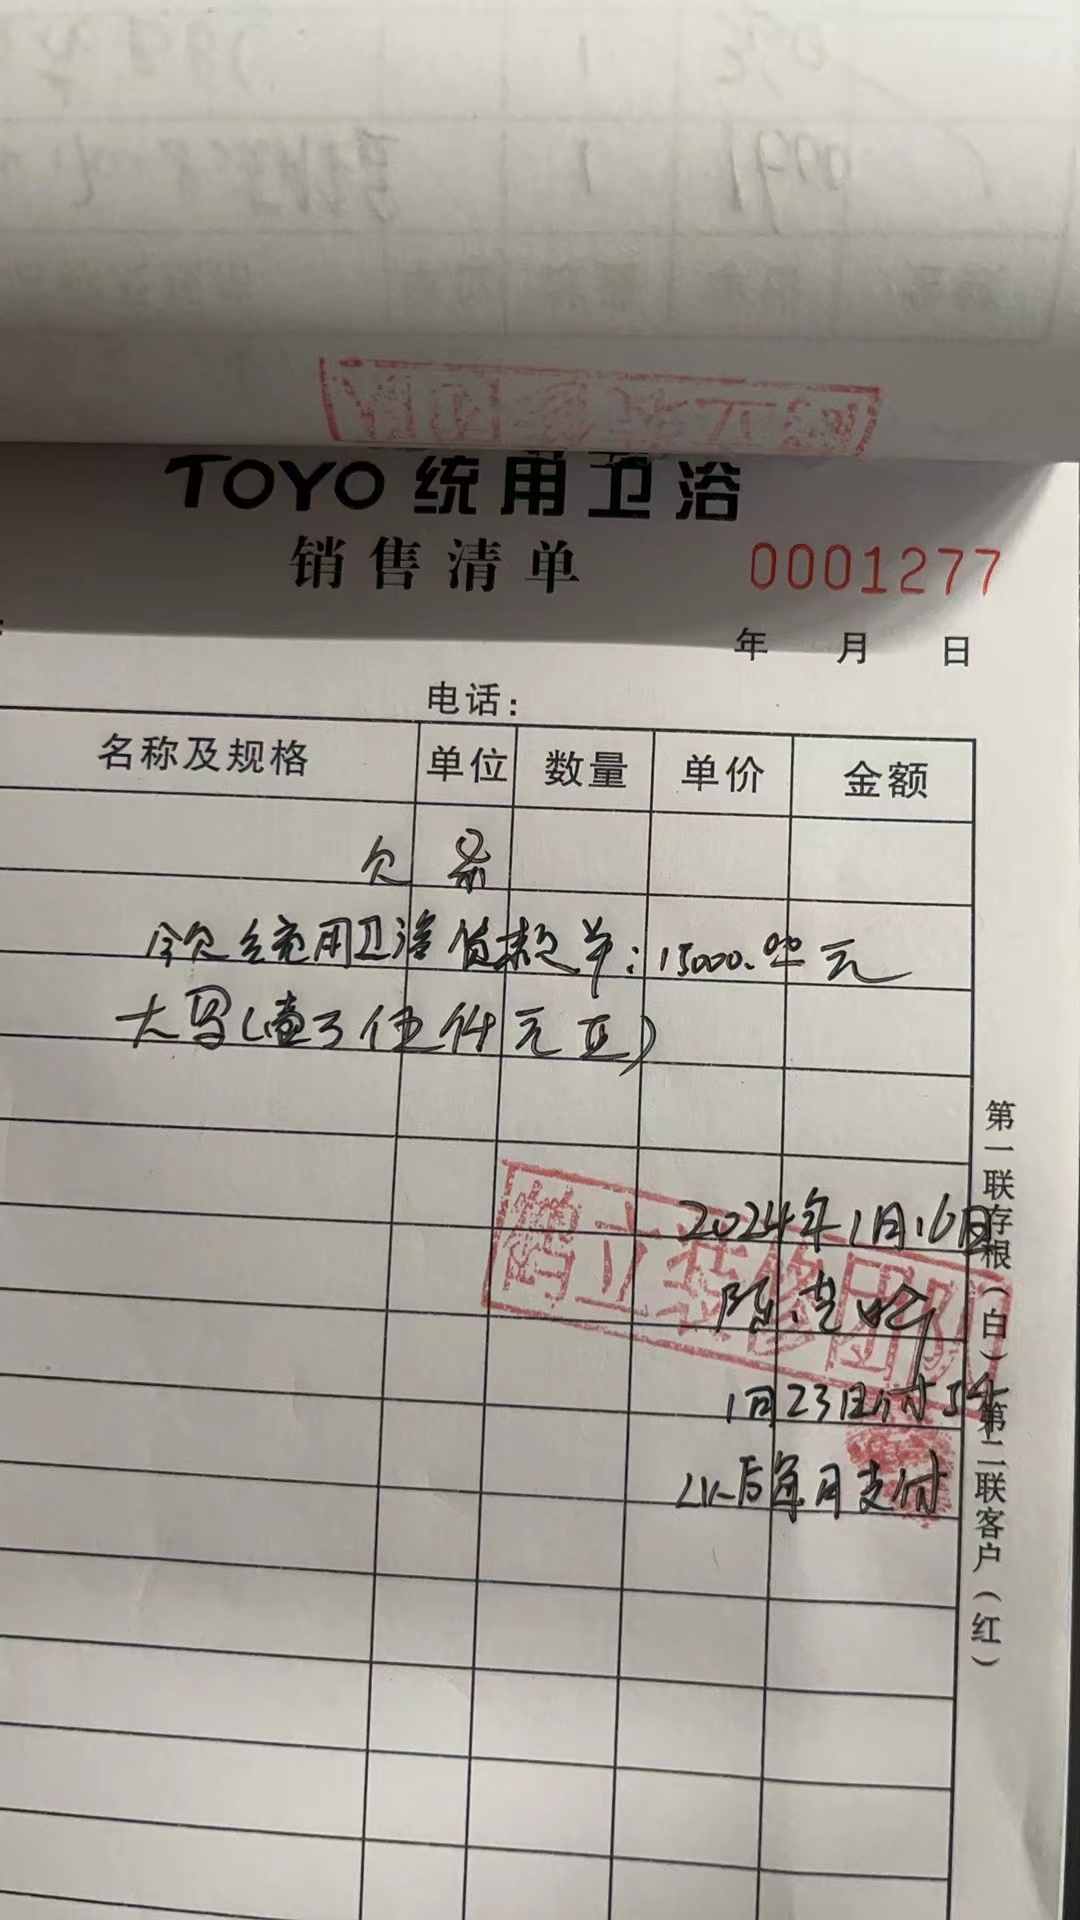 TOYO 统用卫浴
销售清单
0001277
年 月 日
电话：
名称及规格 单位 数量 单价 金额
欠条
今欠统用卫浴货款单：15000.00元
大写（壹万伍仟元正）
2024年1月16日
鹤立装修团队
陈
1月23日付5仟
以后每月支付
第一联存根（白）第二联客户（红）